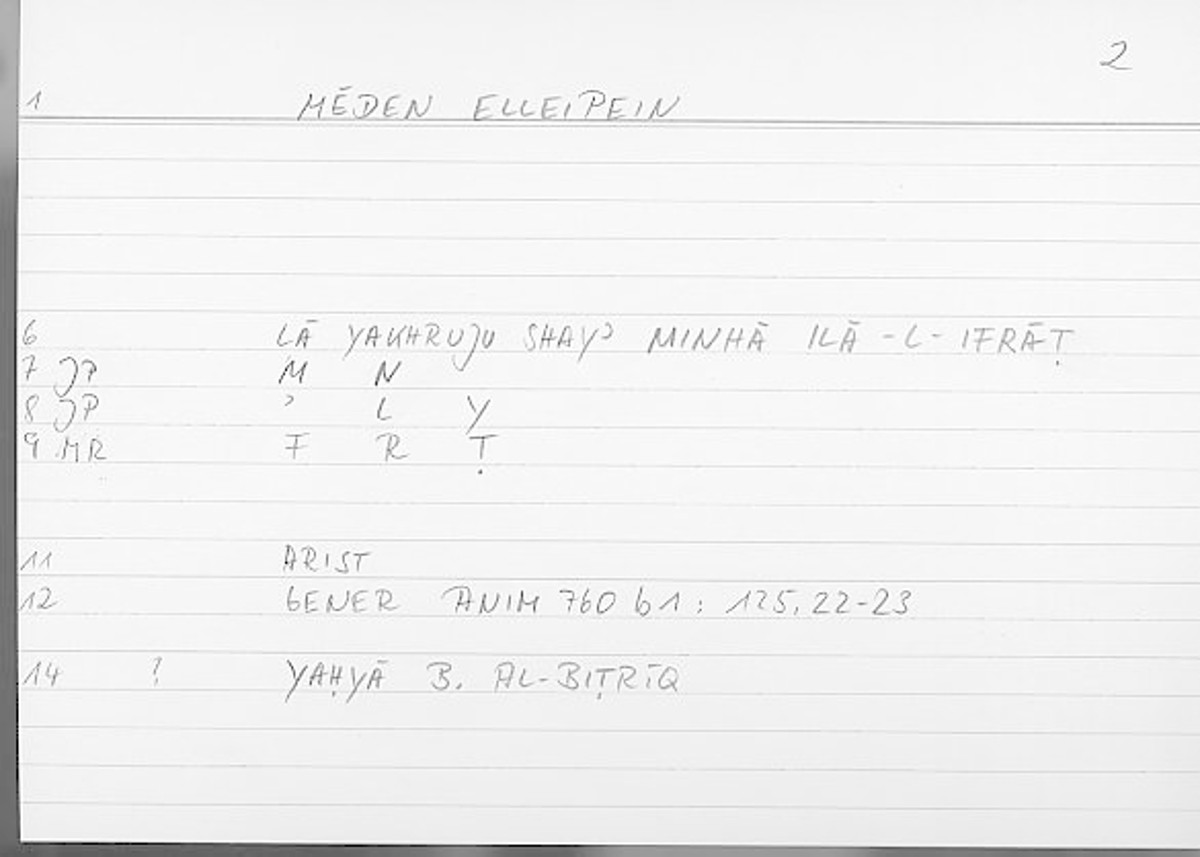 2
1 MĒDEN ELLEIPEIN
6 LĀ YAKHRUJU SHAYʾ MINHĀ ILĀ -L- IFRĀṬ
7 JP M N
8 JP ʾ L Y
9 MR F R Ṭ
11 ARIST
12 GENER ANIM 760 b1 : 125.22-23
14 ? YAḤYĀ B. AL-BIṬRĪQ